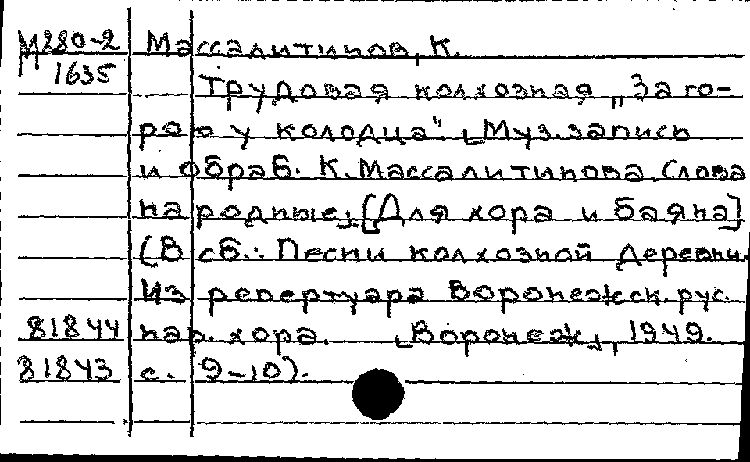 М280-2 Массалитинов, К.
1635 Трудовая колхозная „За го-
рою у колодца". [Муз.запись
и обраб. К. Массалитинова. Слова
народные]. [Для хора и баяна]
(В сб.: Песни колхозной деревни.
Из репертуара Воронежск. рус.
81844 нар. хора. [Воронеж], 1949.
81843 с. 9-10).